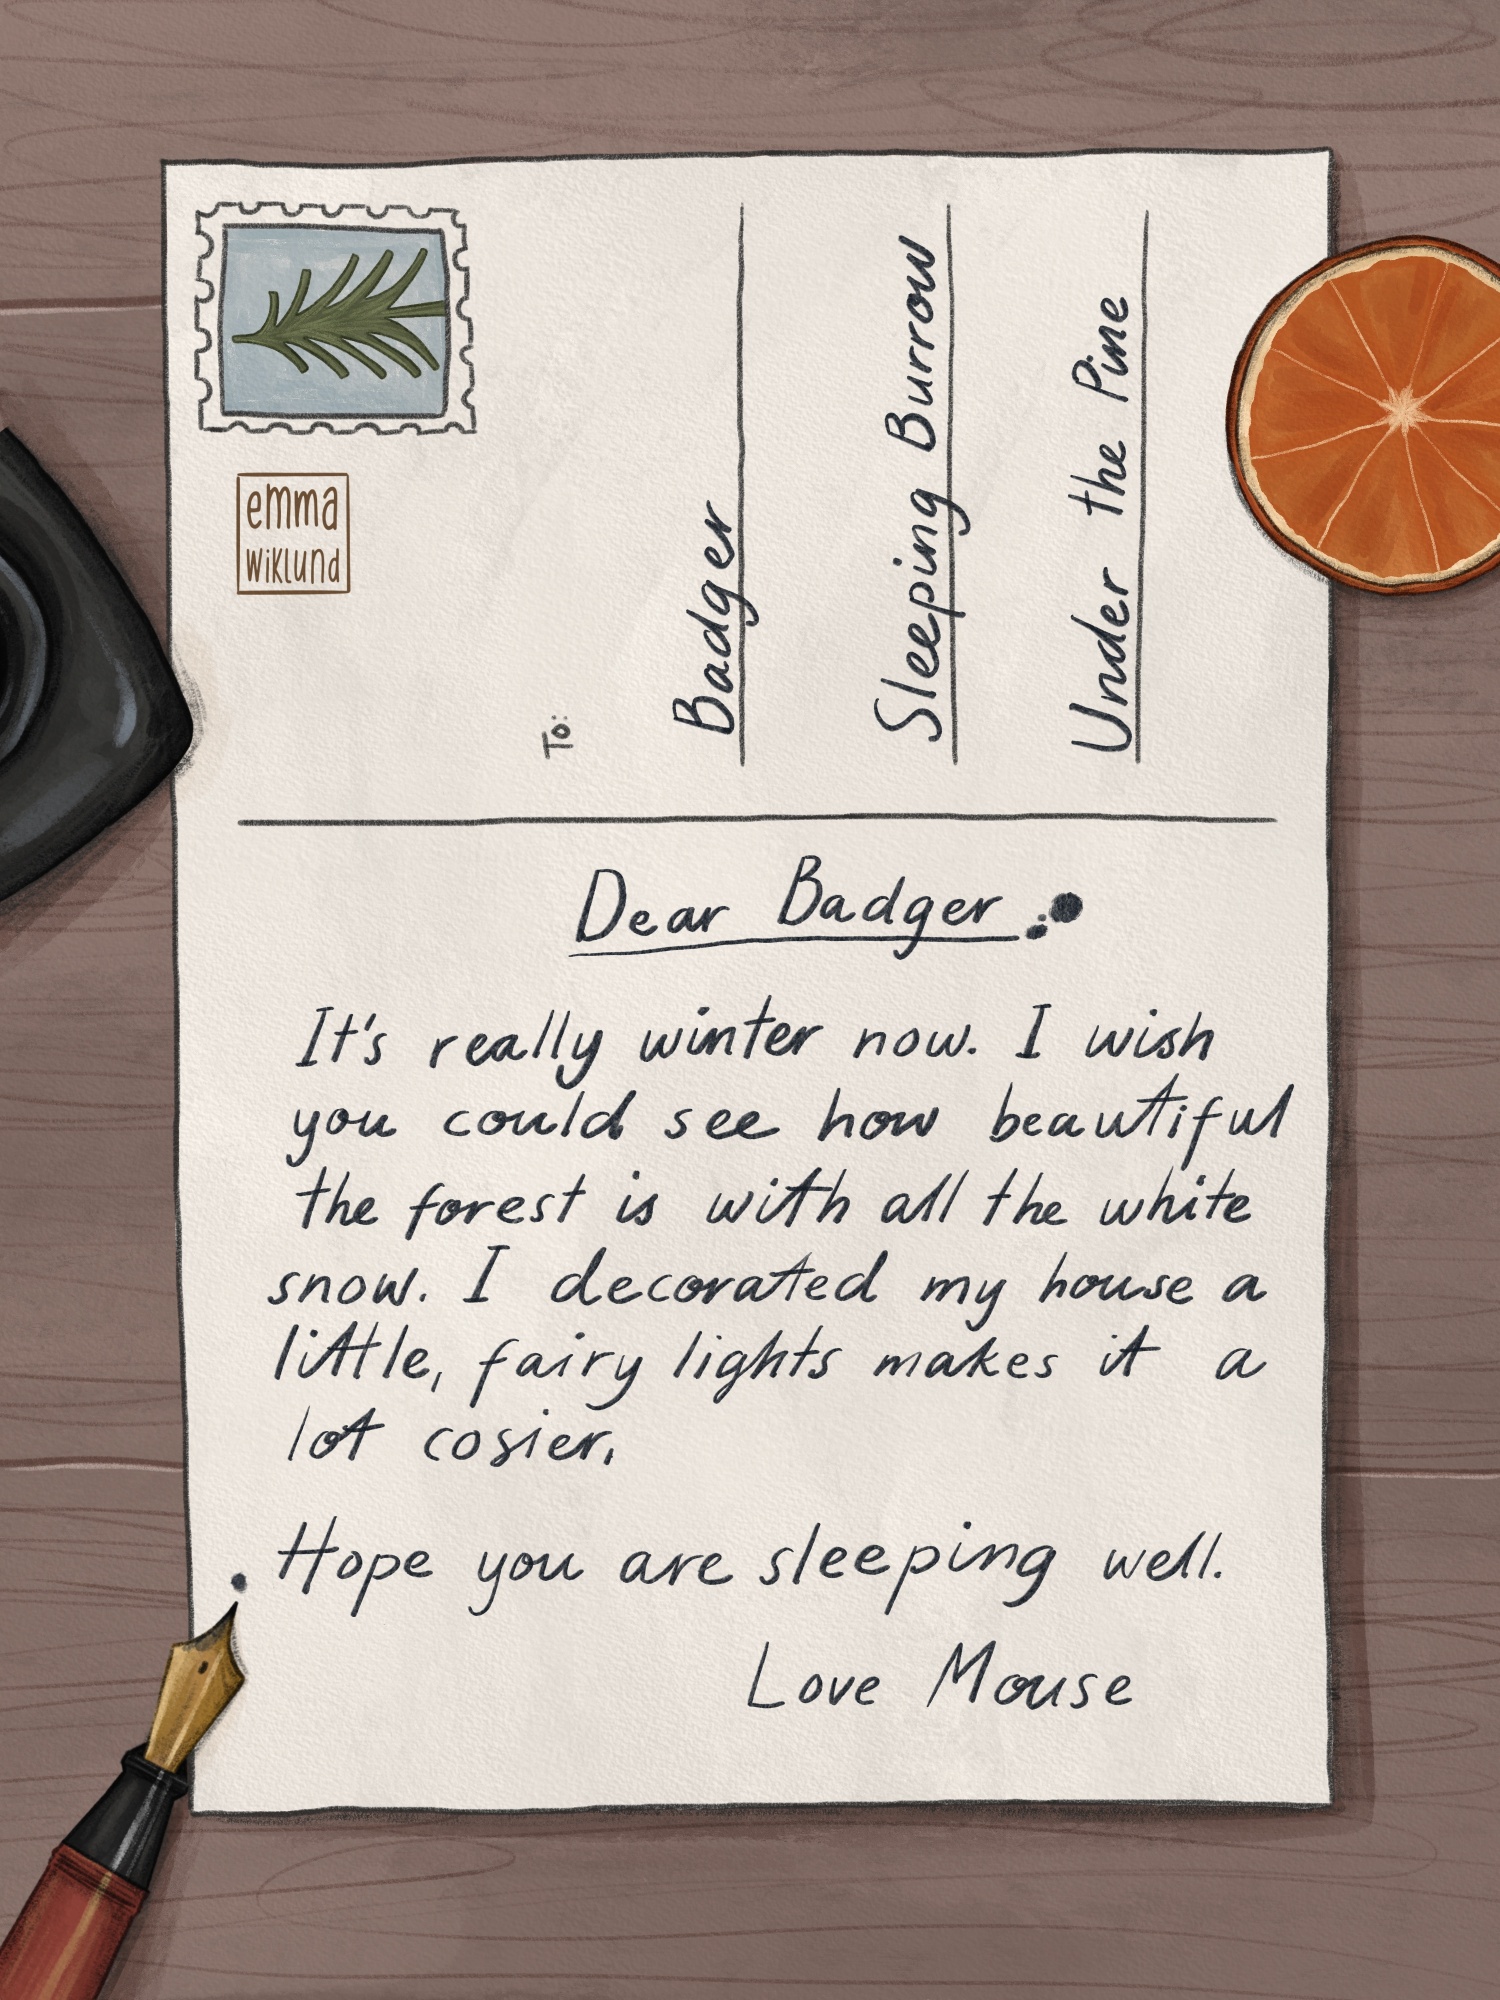 emma
wiklund
To:
Badger
Sleeping Burrow
Under the Pine
Dear Badger
It's really winter now. I wish
you could see how beautiful
the forest is with all the white
snow. I decorated my house a
little, fairy lights makes it a
lot cosier.
Hope you are sleeping well.
Love Mouse